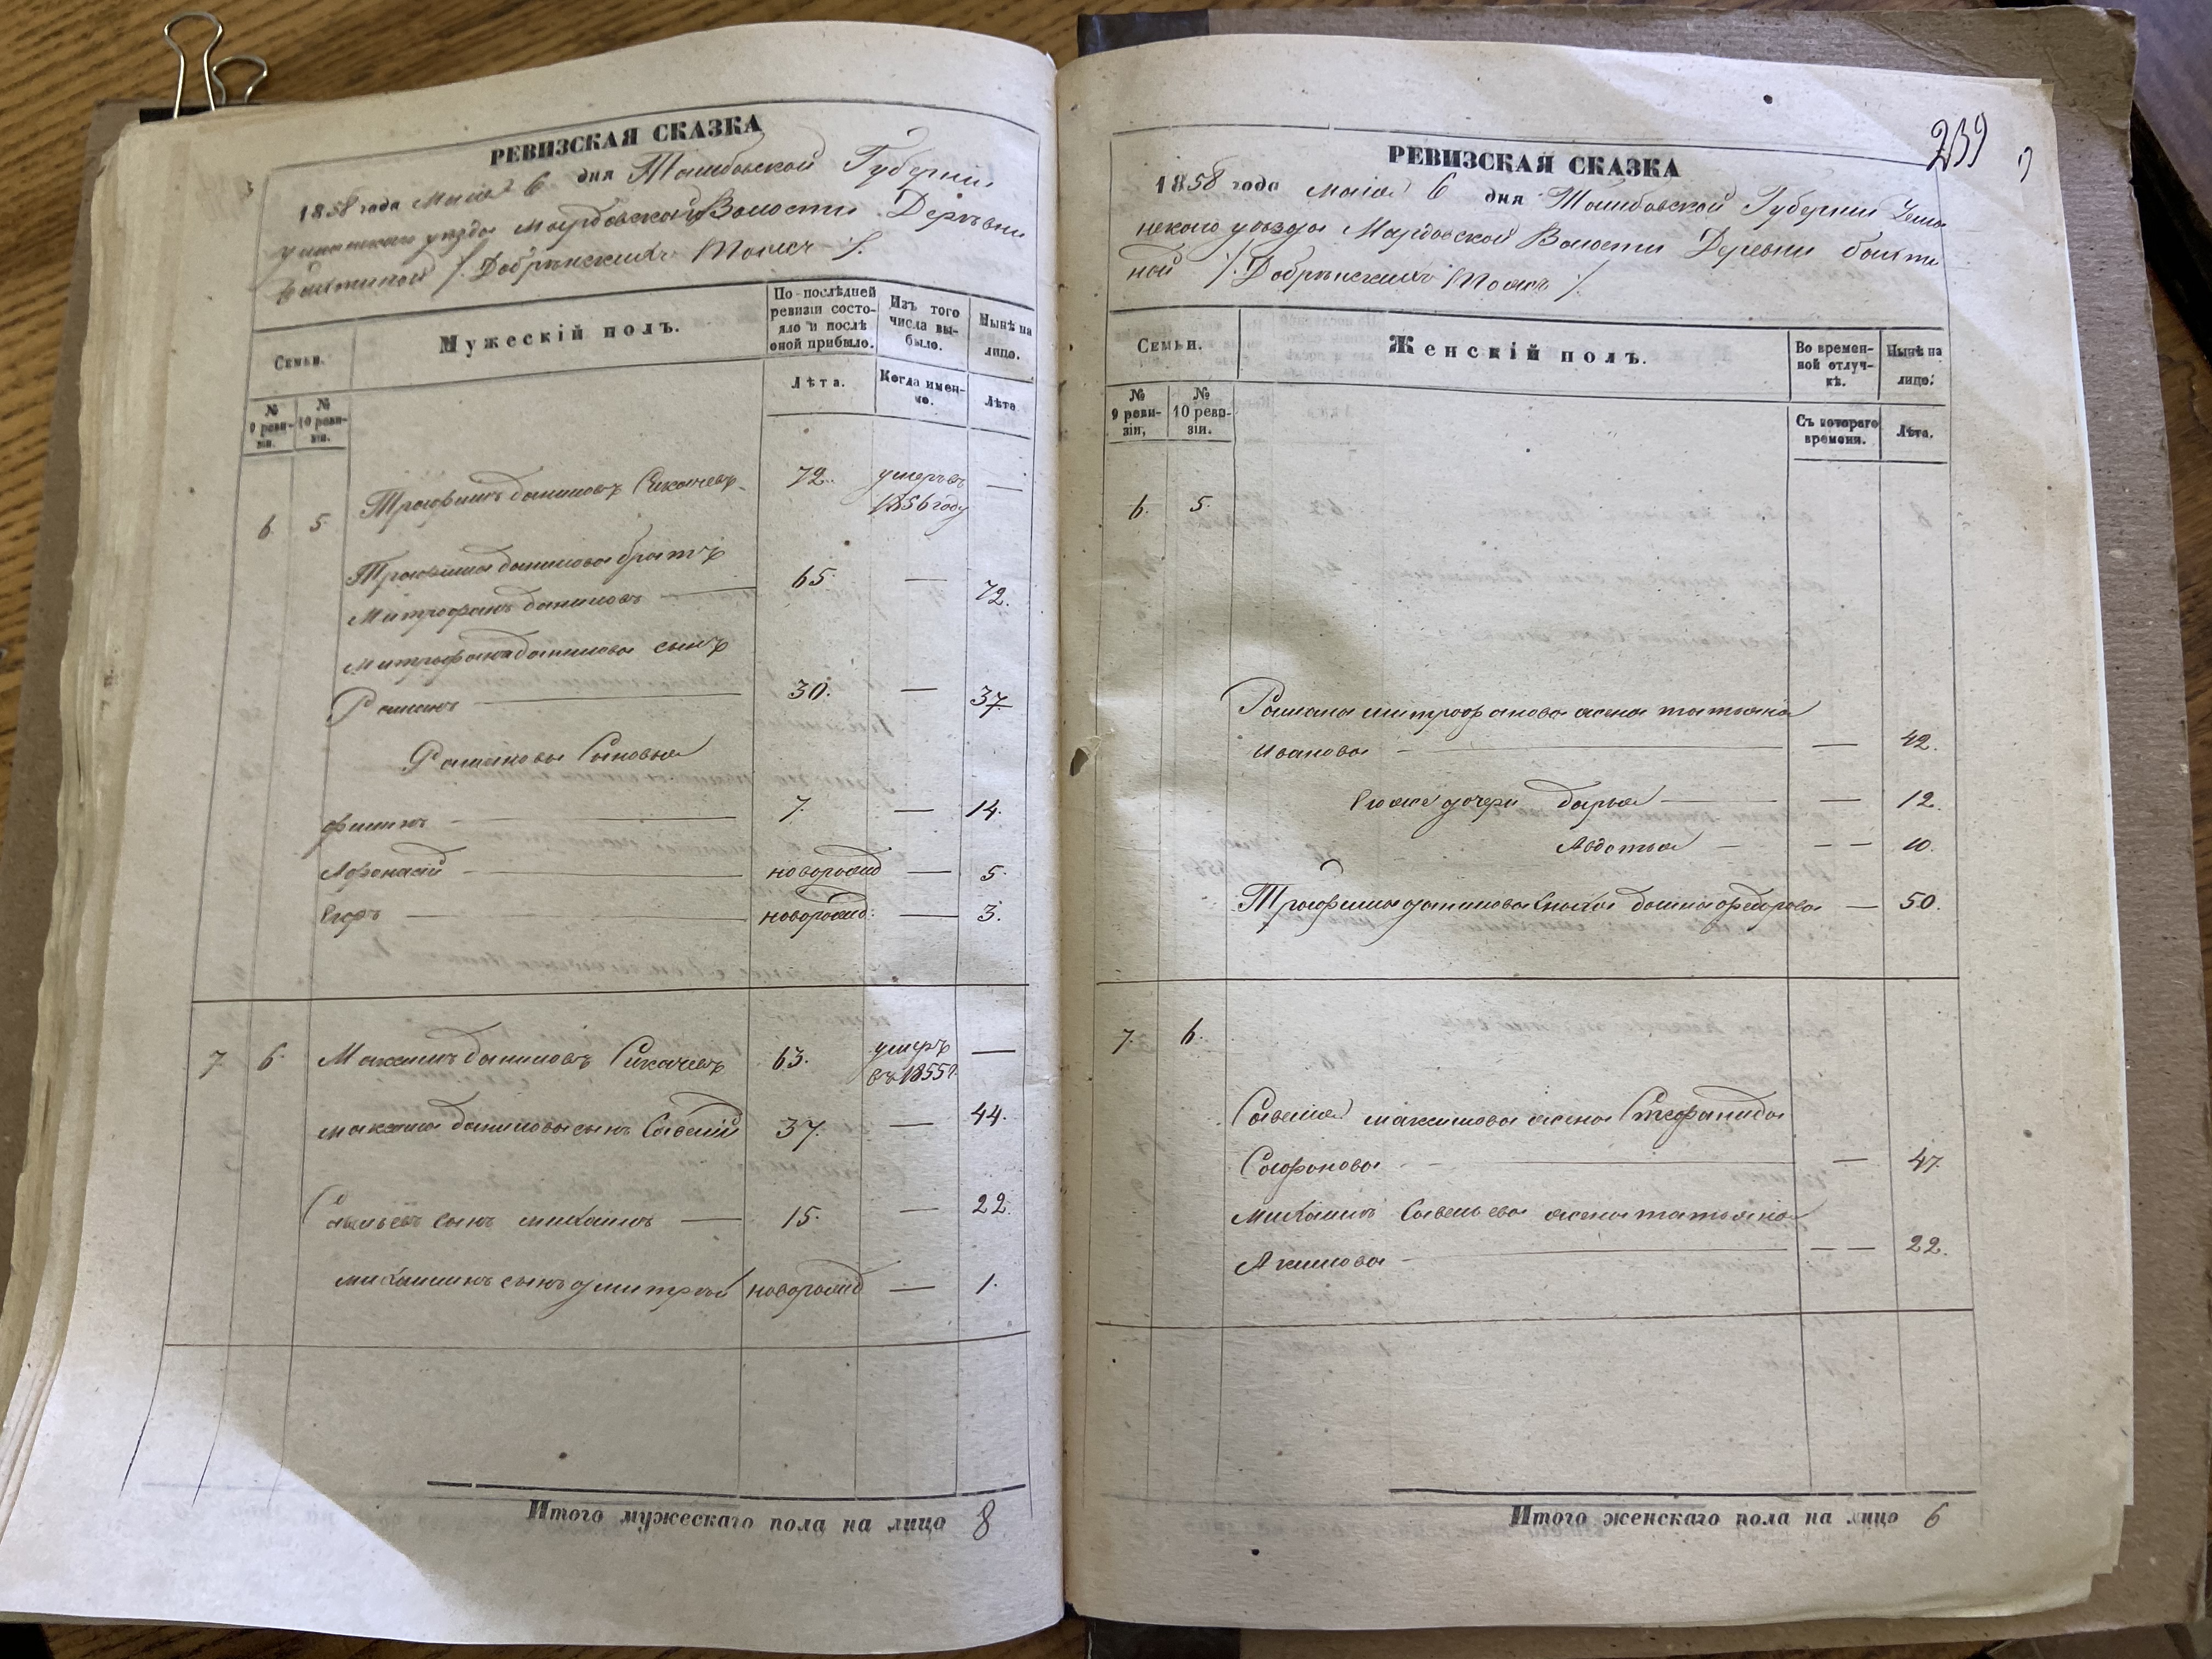 РЕВИЗСКАЯ СКАЗКА
1858 года Маія 6 дня Тамбовской Губерніи
уѣзда Мордовской Волости Деревни
/: Добринскихъ тожъ :/
Семьи.
Мужескій полъ.
По послѣдней ревизіи состояло и послѣ оной прибыло.
Изъ того числа выбыло.
Нынѣ на лицо.
№ 9 ревизіи.
№ 10 ревизіи.
Лѣта.
Когда именно.
Лѣта
6. 5. Трофимъ Даниловъ 72. умеръ въ 1856 году —
Трофима Данилова братъ
Митрофанъ Даниловъ — 65. — 72.
Митрофана Данилова сынъ
Романъ — 30. — 37.
Романовы Сыновья
Филипъ — 7. — 14.
Афонасій — новорожд — 5.
Егоръ — новорожд: — 3.
7. 6. Максимъ Даниловъ 63. умеръ въ 1855 г. —
Максима Данилова сынъ Савелій 37. — 44.
Савельевъ сынъ Михаилъ — 15. — 22.
Михаилинъ сынъ Дмитрій новорожд — 1.
Итого мужескаго пола на лицо 8
239
РЕВИЗСКАЯ СКАЗКА
1858 года Маія 6 дня Тамбовской Губерніи Усма
нскаго уѣзда Мордовской Волости Деревни
/: Добринскихъ тожъ :/
Семьи.
Женскій полъ.
Во временной отлучкѣ.
Нынѣ на лицо.
№ 9 ревизіи,
№ 10 ревизіи.
Съ котораго времени.
Лѣта.
6. 5.
Романа Митрофанова жена Татьяна
Иванова — — 42.
Егоже дочери Дарья — — 12.
Авдотья — — — 10.
Трофима Данилова Домна Федорова — 50.
7. 6.
Савелія Максимова жена Стефанида
Софронова — — 47.
Михаилы Савельева жена Татьяна
Акимова — — — 22.
Итого женскаго пола на лицо 6